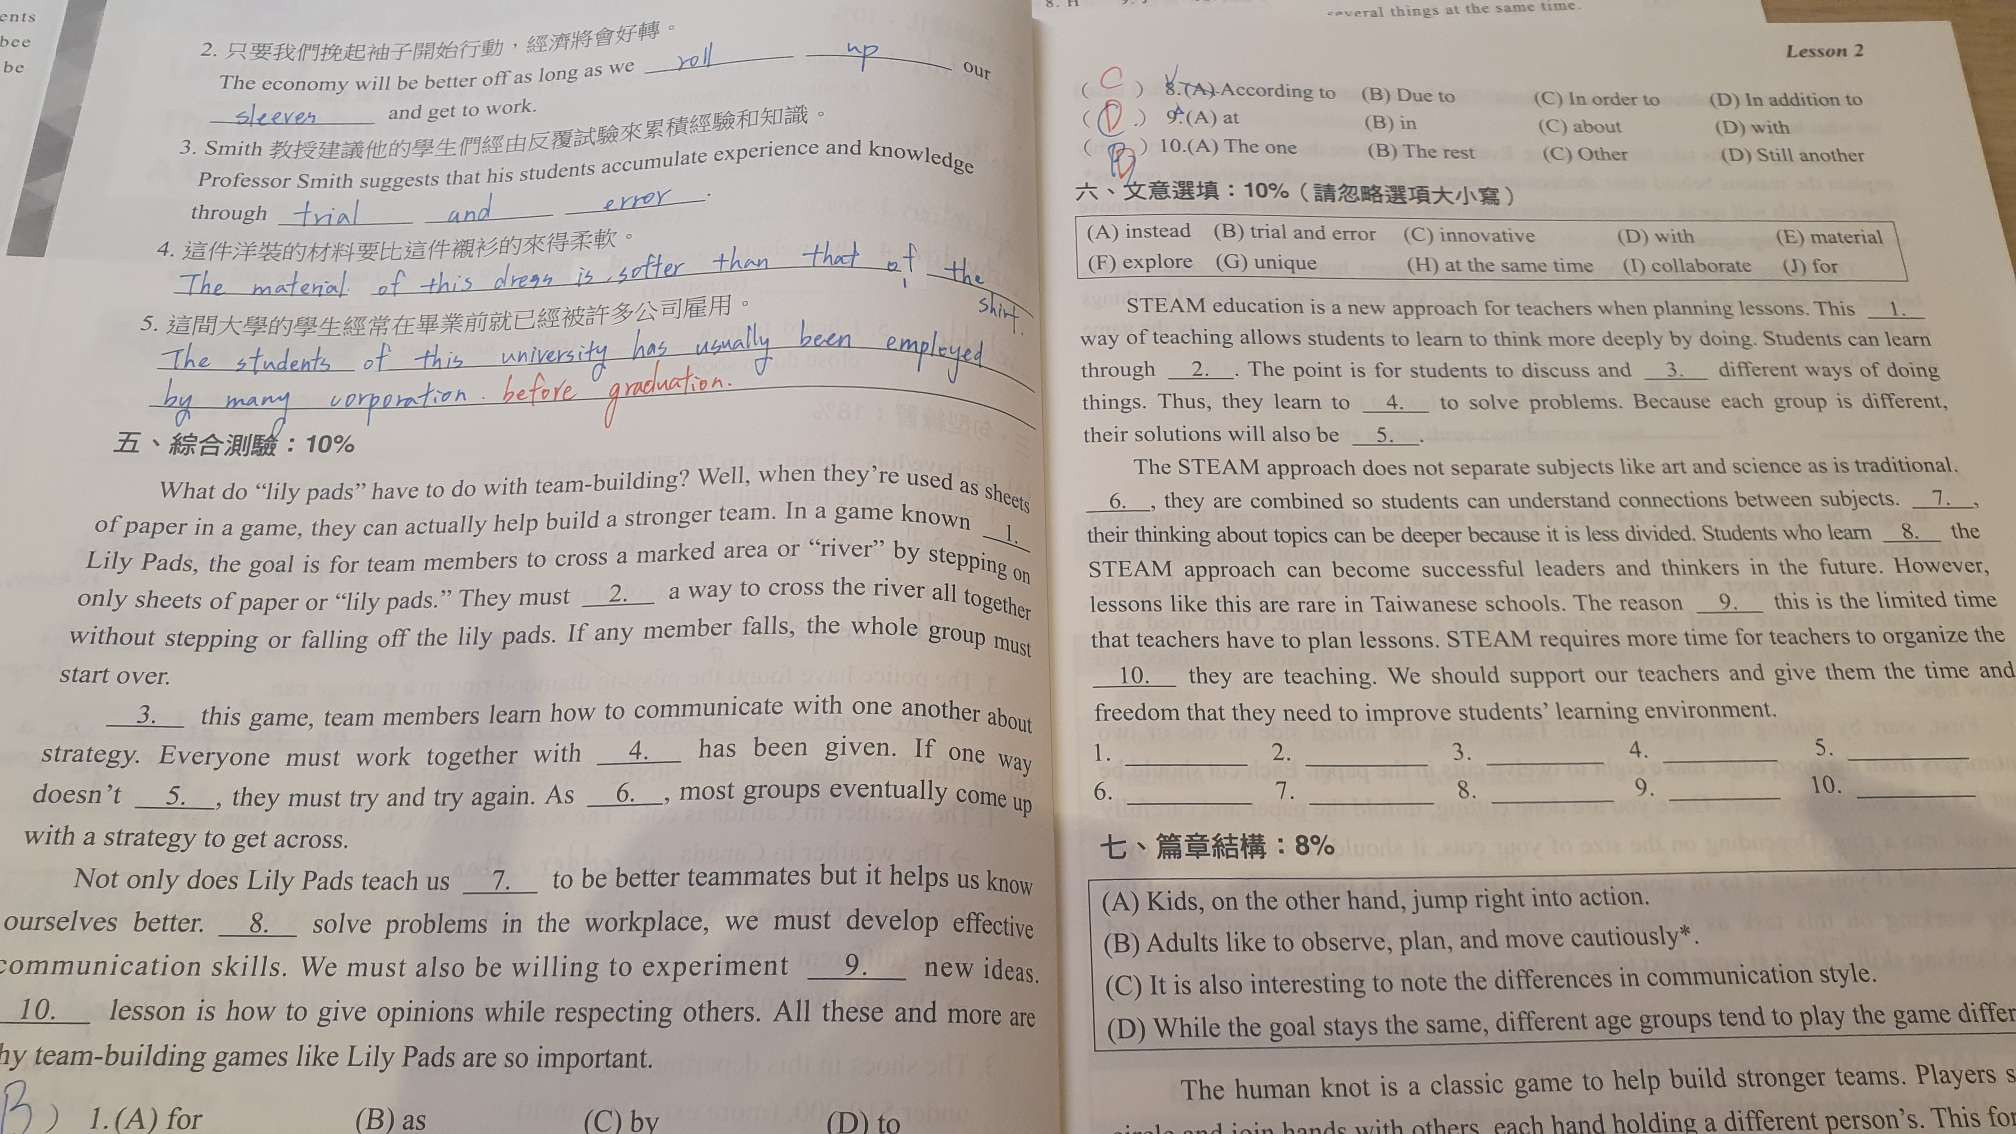 ents
bee
be
2. 只要我們挽起袖子開始行動，經濟將會好轉。
The economy will be better off as long as we roll up our
sleeves and get to work.
3. Smith 教授建議他的學生們經由反覆試驗來累積經驗和知識。
Professor Smith suggests that his students accumulate experience and knowledge
through trial and error.
4. 這件洋裝的材料要比這件襯衫的來得柔軟。
The material of this dress is softer than that of the
shirt.
5. 這間大學的學生經常在畢業前就已經被許多公司雇用。
The students of this university has usually been employed
by many corporation. before graduation.
五、綜合測驗：10%
What do “lily pads” have to do with team-building? Well, when they’re used as sheets
of paper in a game, they can actually help build a stronger team. In a game known 1.
Lily Pads, the goal is for team members to cross a marked area or “river” by stepping on
only sheets of paper or “lily pads.” They must 2. a way to cross the river all together
without stepping or falling off the lily pads. If any member falls, the whole group must
start over.
3. this game, team members learn how to communicate with one another about
strategy. Everyone must work together with 4. has been given. If one way
doesn’t 5., they must try and try again. As 6., most groups eventually come up
with a strategy to get across.
Not only does Lily Pads teach us 7. to be better teammates but it helps us know
ourselves better. 8. solve problems in the workplace, we must develop effective
communication skills. We must also be willing to experiment 9. new ideas.
10. lesson is how to give opinions while respecting others. All these and more are
hy team-building games like Lily Pads are so important.
B ) 1.(A) for (B) as (C) by (D) to
8. H
several things at the same time.
Lesson 2
( C ) 8.(A) According to (B) Due to (C) In order to (D) In addition to
( D ) 9.(A) at (B) in (C) about (D) with
( ) 10.(A) The one (B) The rest (C) Other (D) Still another
六、文意選填：10%（請忽略選項大小寫）
(A) instead (B) trial and error (C) innovative (D) with (E) material
(F) explore (G) unique (H) at the same time (I) collaborate (J) for
STEAM education is a new approach for teachers when planning lessons. This 1.
way of teaching allows students to learn to think more deeply by doing. Students can learn
through 2. . The point is for students to discuss and 3. different ways of doing
things. Thus, they learn to 4. to solve problems. Because each group is different,
their solutions will also be 5. .
The STEAM approach does not separate subjects like art and science as is traditional.
6. , they are combined so students can understand connections between subjects. 7. ,
their thinking about topics can be deeper because it is less divided. Students who learn 8. the
STEAM approach can become successful leaders and thinkers in the future. However,
lessons like this are rare in Taiwanese schools. The reason 9. this is the limited time
that teachers have to plan lessons. STEAM requires more time for teachers to organize the
10. they are teaching. We should support our teachers and give them the time and
freedom that they need to improve students’ learning environment.
1. 2. 3. 4. 5.
6. 7. 8. 9. 10.
七、篇章結構：8%
(A) Kids, on the other hand, jump right into action.
(B) Adults like to observe, plan, and move cautiously*.
(C) It is also interesting to note the differences in communication style.
(D) While the goal stays the same, different age groups tend to play the game differ
The human knot is a classic game to help build stronger teams. Players s
circle and join hands with others, each hand holding a different person’s. This for